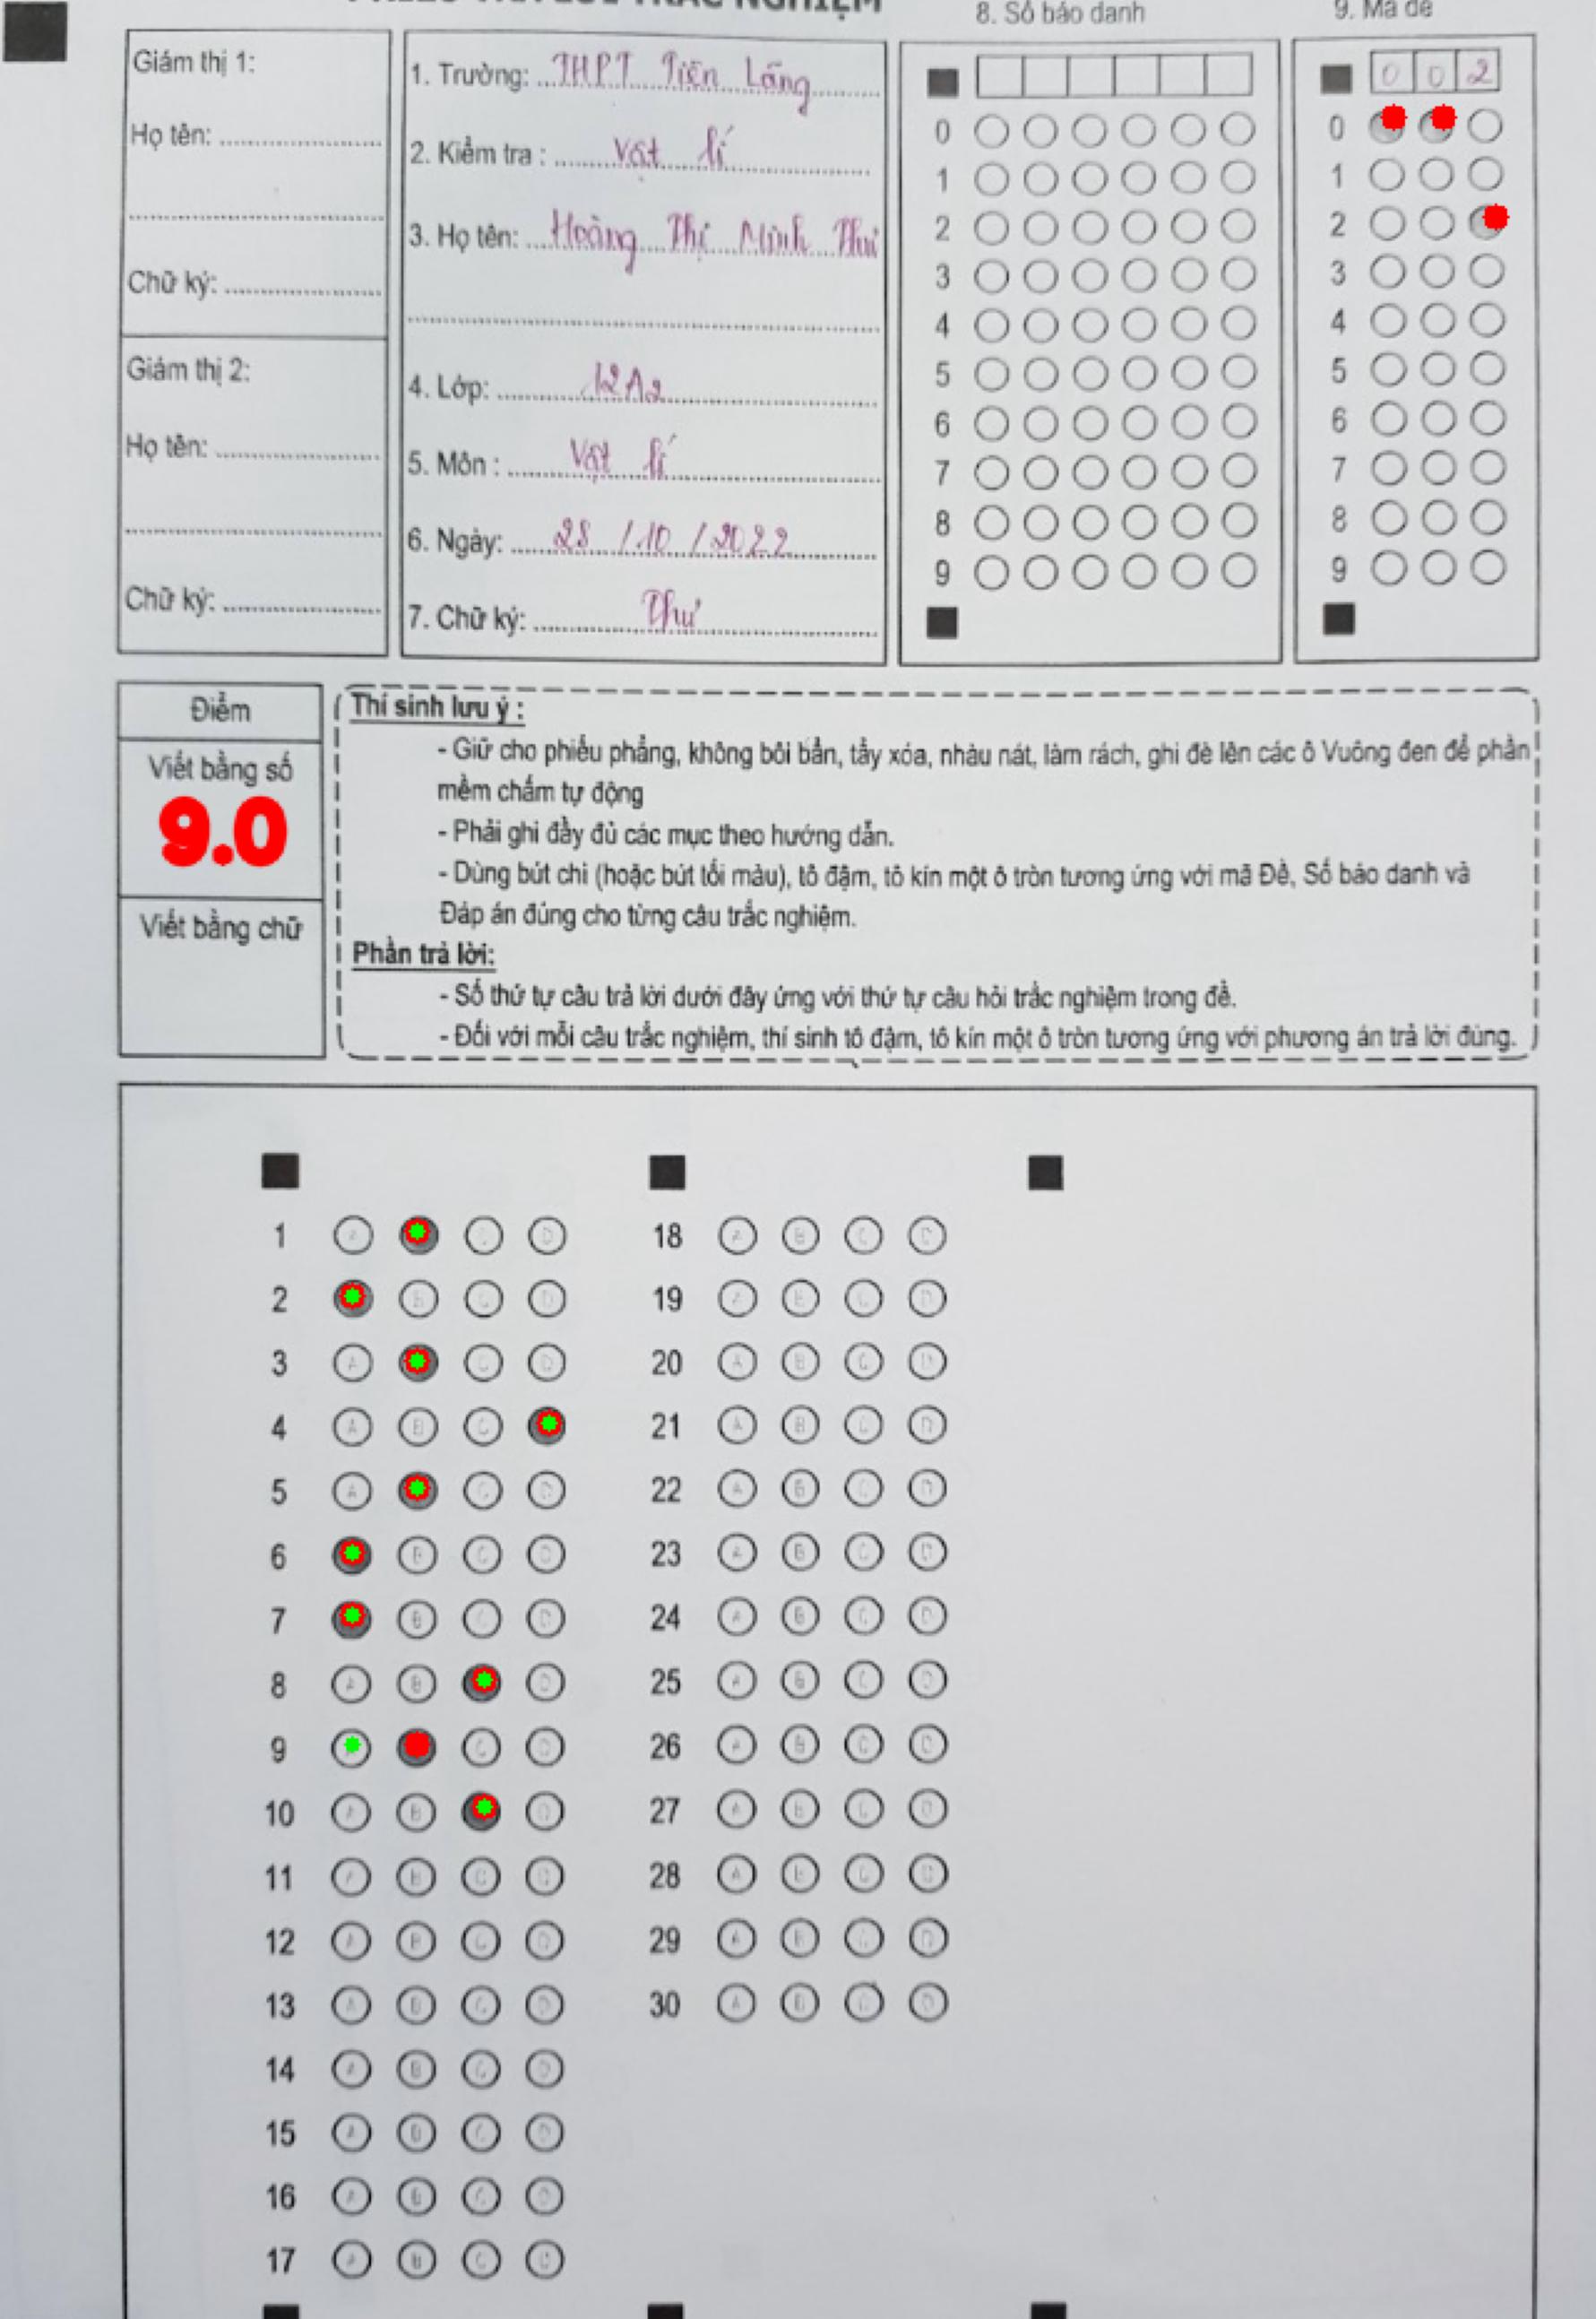 PHIẾU TRẢ LỜI TRẮC NGHIỆM
8. Số báo danh
9. Mã đề
Giám thị 1:
Họ tên:
Chữ ký:
Giám thị 2:
Họ tên:
Chữ ký:
1. Trường: THPT Tiên Lãng
2. Kiểm tra : Vật lí
3. Họ tên: Hoàng Thị Minh Thư
4. Lớp: 12A2
5. Môn : Vật lí
6. Ngày: 28 / 10 / 2022
7. Chữ ký: Thư
0
1
2
3
4
5
6
7
8
9
0 0 2
0
1
2
3
4
5
6
7
8
9
Điểm
Viết bằng số
9.0
Viết bằng chữ
Thí sinh lưu ý :
- Giữ cho phiếu phẳng, không bôi bẩn, tẩy xóa, nhàu nát, làm rách, ghi đè lên các ô Vuông đen để phần
mềm chấm tự động
- Phải ghi đầy đủ các mục theo hướng dẫn.
- Dùng bút chì (hoặc bút tối màu), tô đậm, tô kín một ô tròn tương ứng với mã Đề, Số báo danh và
Đáp án đúng cho từng câu trắc nghiệm.
Phần trả lời:
- Số thứ tự câu trả lời dưới đây ứng với thứ tự câu hỏi trắc nghiệm trong đề.
- Đối với mỗi câu trắc nghiệm, thí sinh tô đậm, tô kín một ô tròn tương ứng với phương án trả lời đúng.
1
2
3
4
5
6
7
8
9
10
11
12
13
14
15
16
17
18
19
20
21
22
23
24
25
26
27
28
29
30